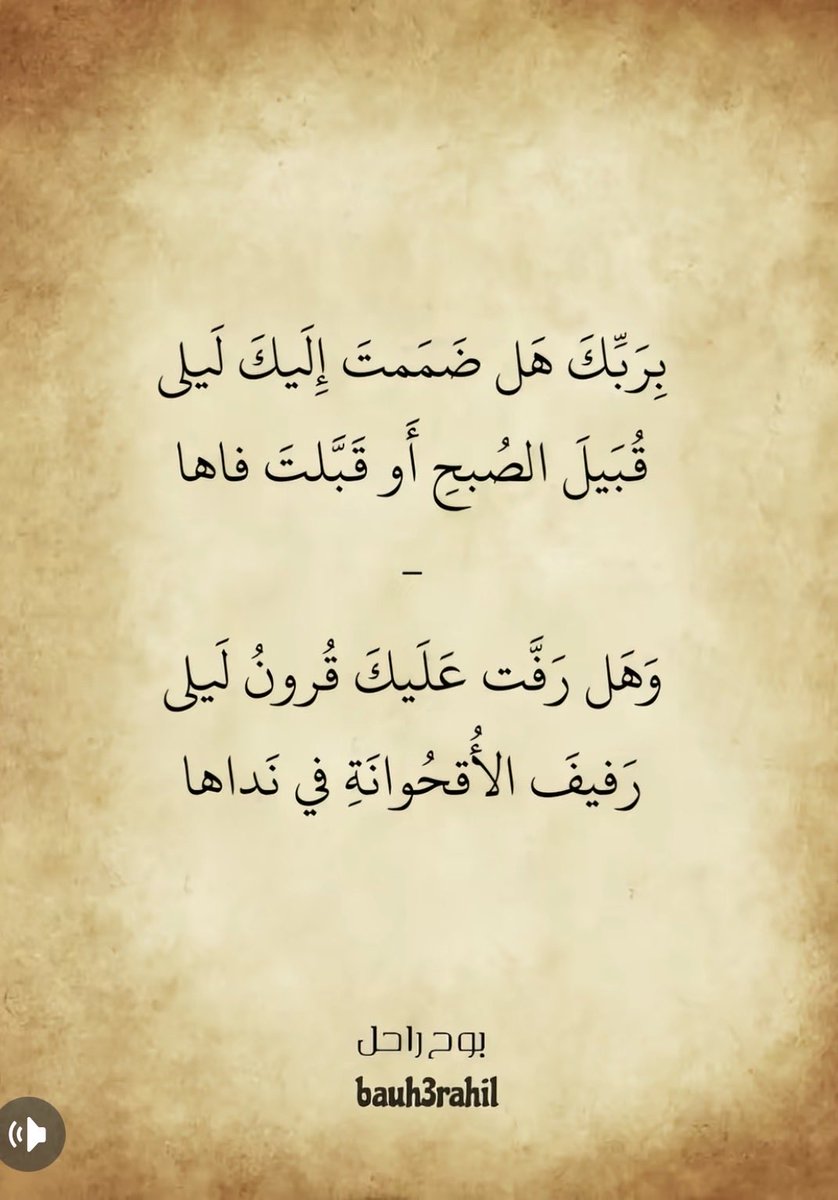 بِرَبِّكَ هَل ضَمَمتَ إِلَيكَ لَيلى
قُبَيلَ الصُبحِ أَو قَبَّلتَ فاها
–
وَهَل رَفَّت عَلَيكَ قُرونُ لَيلى
رَفيفَ الأُقحُوانَةِ في نَداها
بوح راحل
bauh3rahil